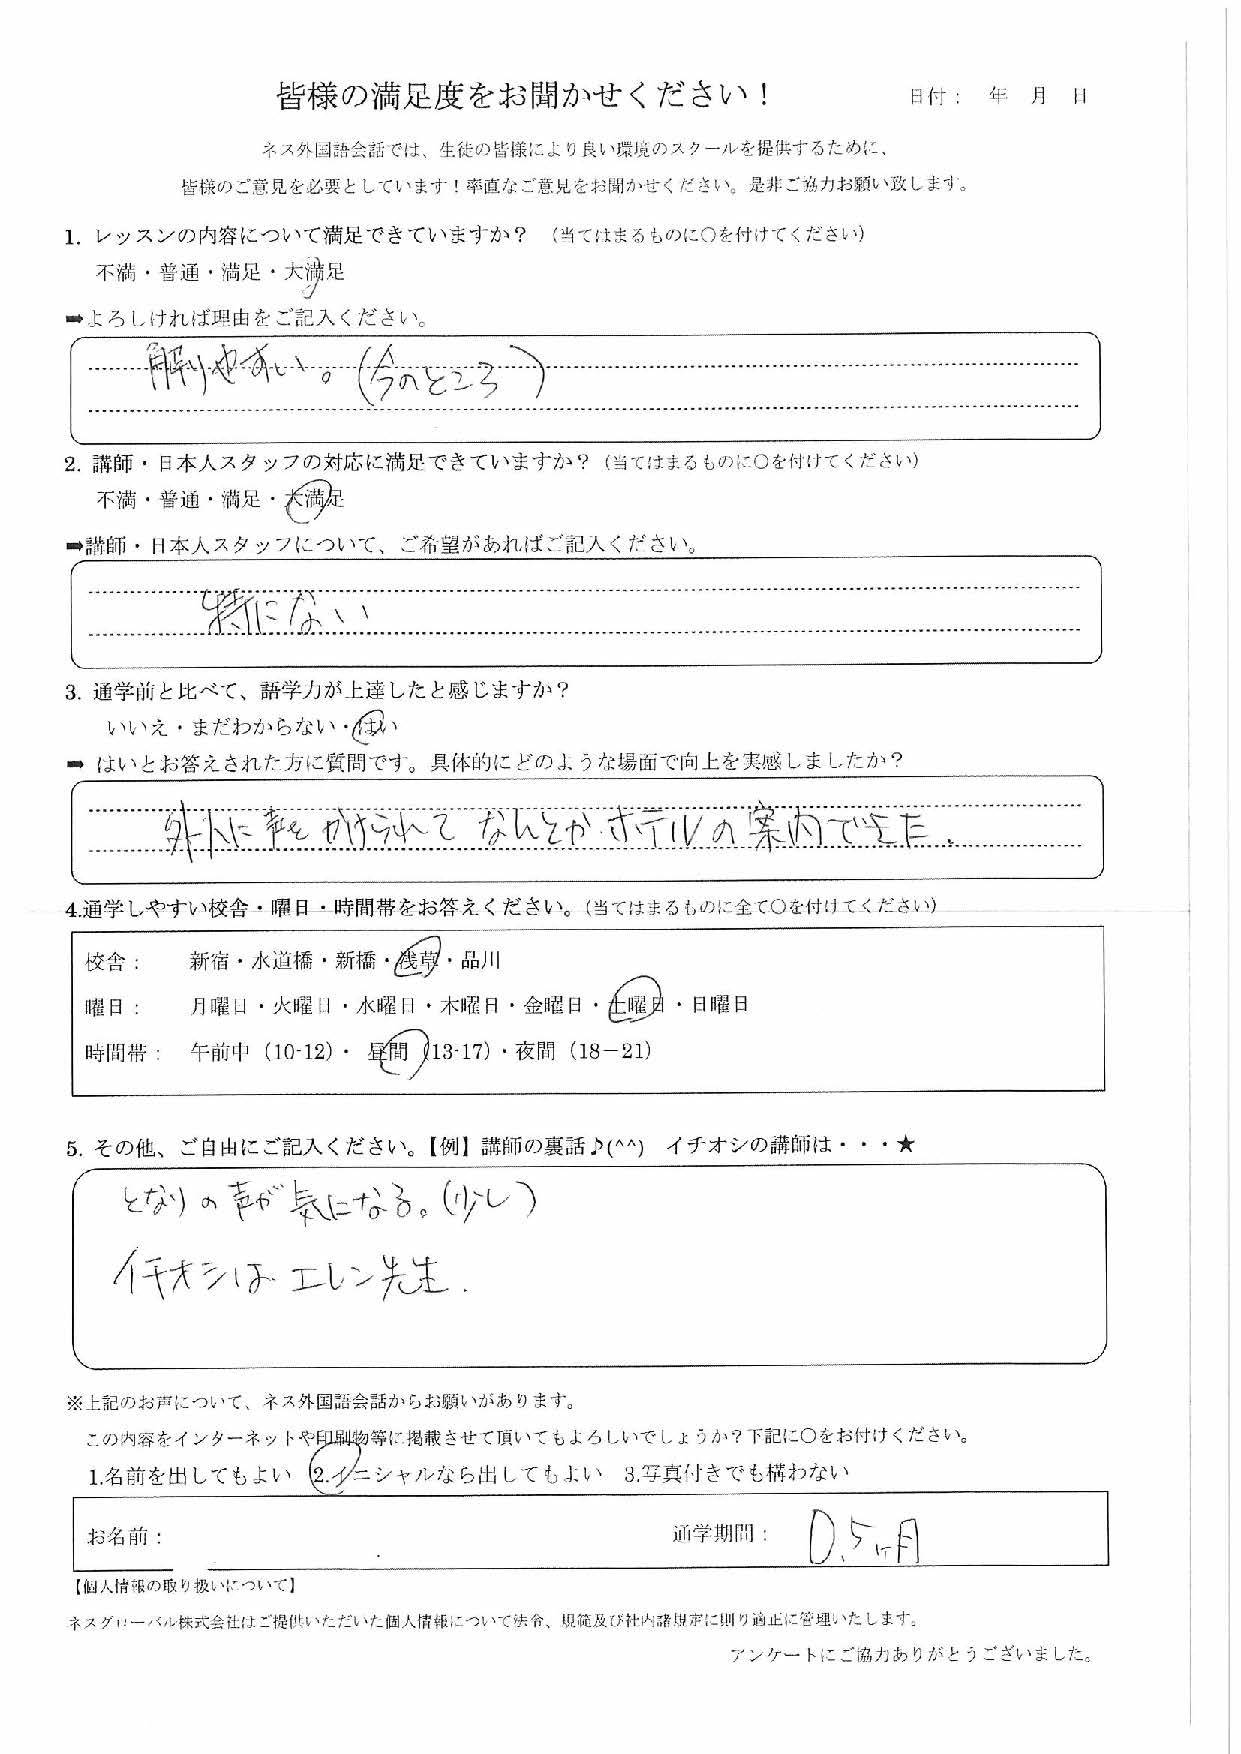 皆様の満足度をお聞かせください！
日付： 年 月 日
ネス外国語会話では、生徒の皆様により良い環境のスクールを提供するために、
皆様のご意見を必要としています！率直なご意見をお聞かせください。是非ご協力お願い致します。
1. レッスンの内容について満足できていますか？ （当てはまるものに〇を付けてください）
不満・普通・満足・大満足
➡よろしければ理由をご記入ください。
解りやすい。（今のところ）
2. 講師・日本人スタッフの対応に満足できていますか？（当てはまるものに〇を付けてください）
不満・普通・満足・大満足
➡講師・日本人スタッフについて、ご希望があればご記入ください。
特にない
3. 通学前と比べて、語学力が上達したと感じますか？
いいえ・まだわからない・はい
➡ はいとお答えされた方に質問です。具体的にどのような場面で向上を実感しましたか？
外人に声をかけられてなんとかホテルの案内できた.
4.通学しやすい校舎・曜日・時間帯をお答えください。（当てはまるものに全て〇を付けてください）
校舎： 新宿・水道橋・新橋・浅草・品川
曜日： 月曜日・火曜日・水曜日・木曜日・金曜日・土曜日・日曜日
時間帯： 午前中（10-12）・ 昼間（13-17）・夜間（18－21）
5. その他、ご自由にご記入ください。【例】講師の裏話♪(^^) イチオシの講師は・・・★
となりの声が気になる。（少し）
イチオシは エレン先生.
※上記のお声について、ネス外国語会話からお願いがあります。
この内容をインターネットや印刷物等に掲載させて頂いてもよろしいでしょうか？下記に〇をお付けください。
1.名前を出してもよい 2.イニシャルなら出してもよい 3.写真付きでも構わない
お名前： 通学期間： 0.5ヶ月
【個人情報の取り扱いについて】
ネスグローバル株式会社はご提供いただいた個人情報について法令、規範及び社内諸規定に則り適正に管理いたします。
アンケートにご協力ありがとうございました。